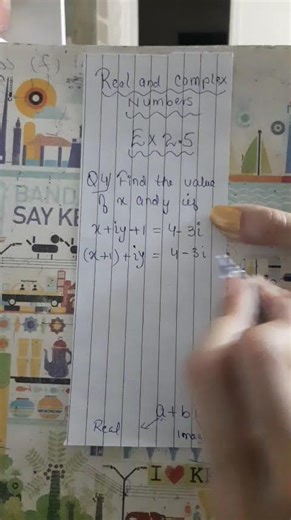 Real and Complex
Numbers
Ex 2.5
Q4/ Find the value
of x and y if
x + iy + 1 = 4 - 3i
(x+1) + iy = 4 - 3i
a + b i
Real
Ima
BAND
SAY KE
I ♥ K